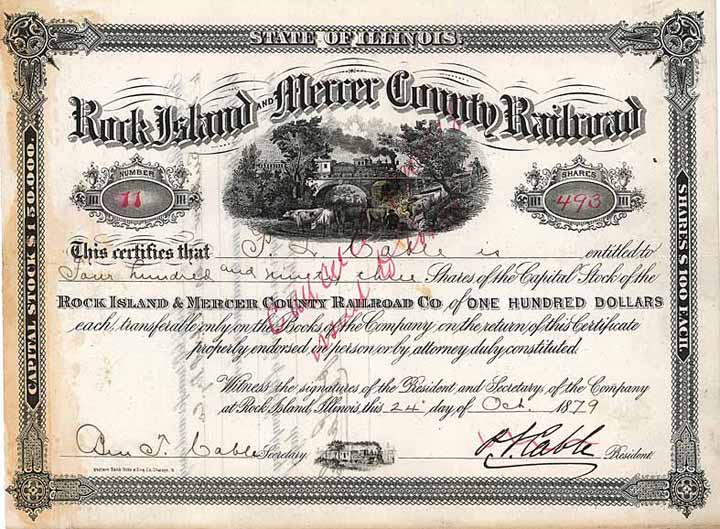 STATE OF ILLINOIS.
Rock Island AND Mercer County Railroad
NUMBER
11
SHARES
493
CAPITAL STOCK $150,000.
SHARES $100 EACH
This certifies that P. L. Cable is entitled to
Four hundred and ninety three Shares of the Capital Stock of the
ROCK ISLAND & MERCER COUNTY RAILROAD CO of ONE HUNDRED DOLLARS
each, transferable only on the Books of the Company on the return of this Certificate
properly endorsed in person or by attorney duly constituted.
Witness the signatures of the President and Secretary of the Company
at Rock Island, Illinois, this 24 day of Oct. 1879
Ben T. Cable Secretary
P. L. Cable President
Western Bank Note & Eng. Co. Chicago.